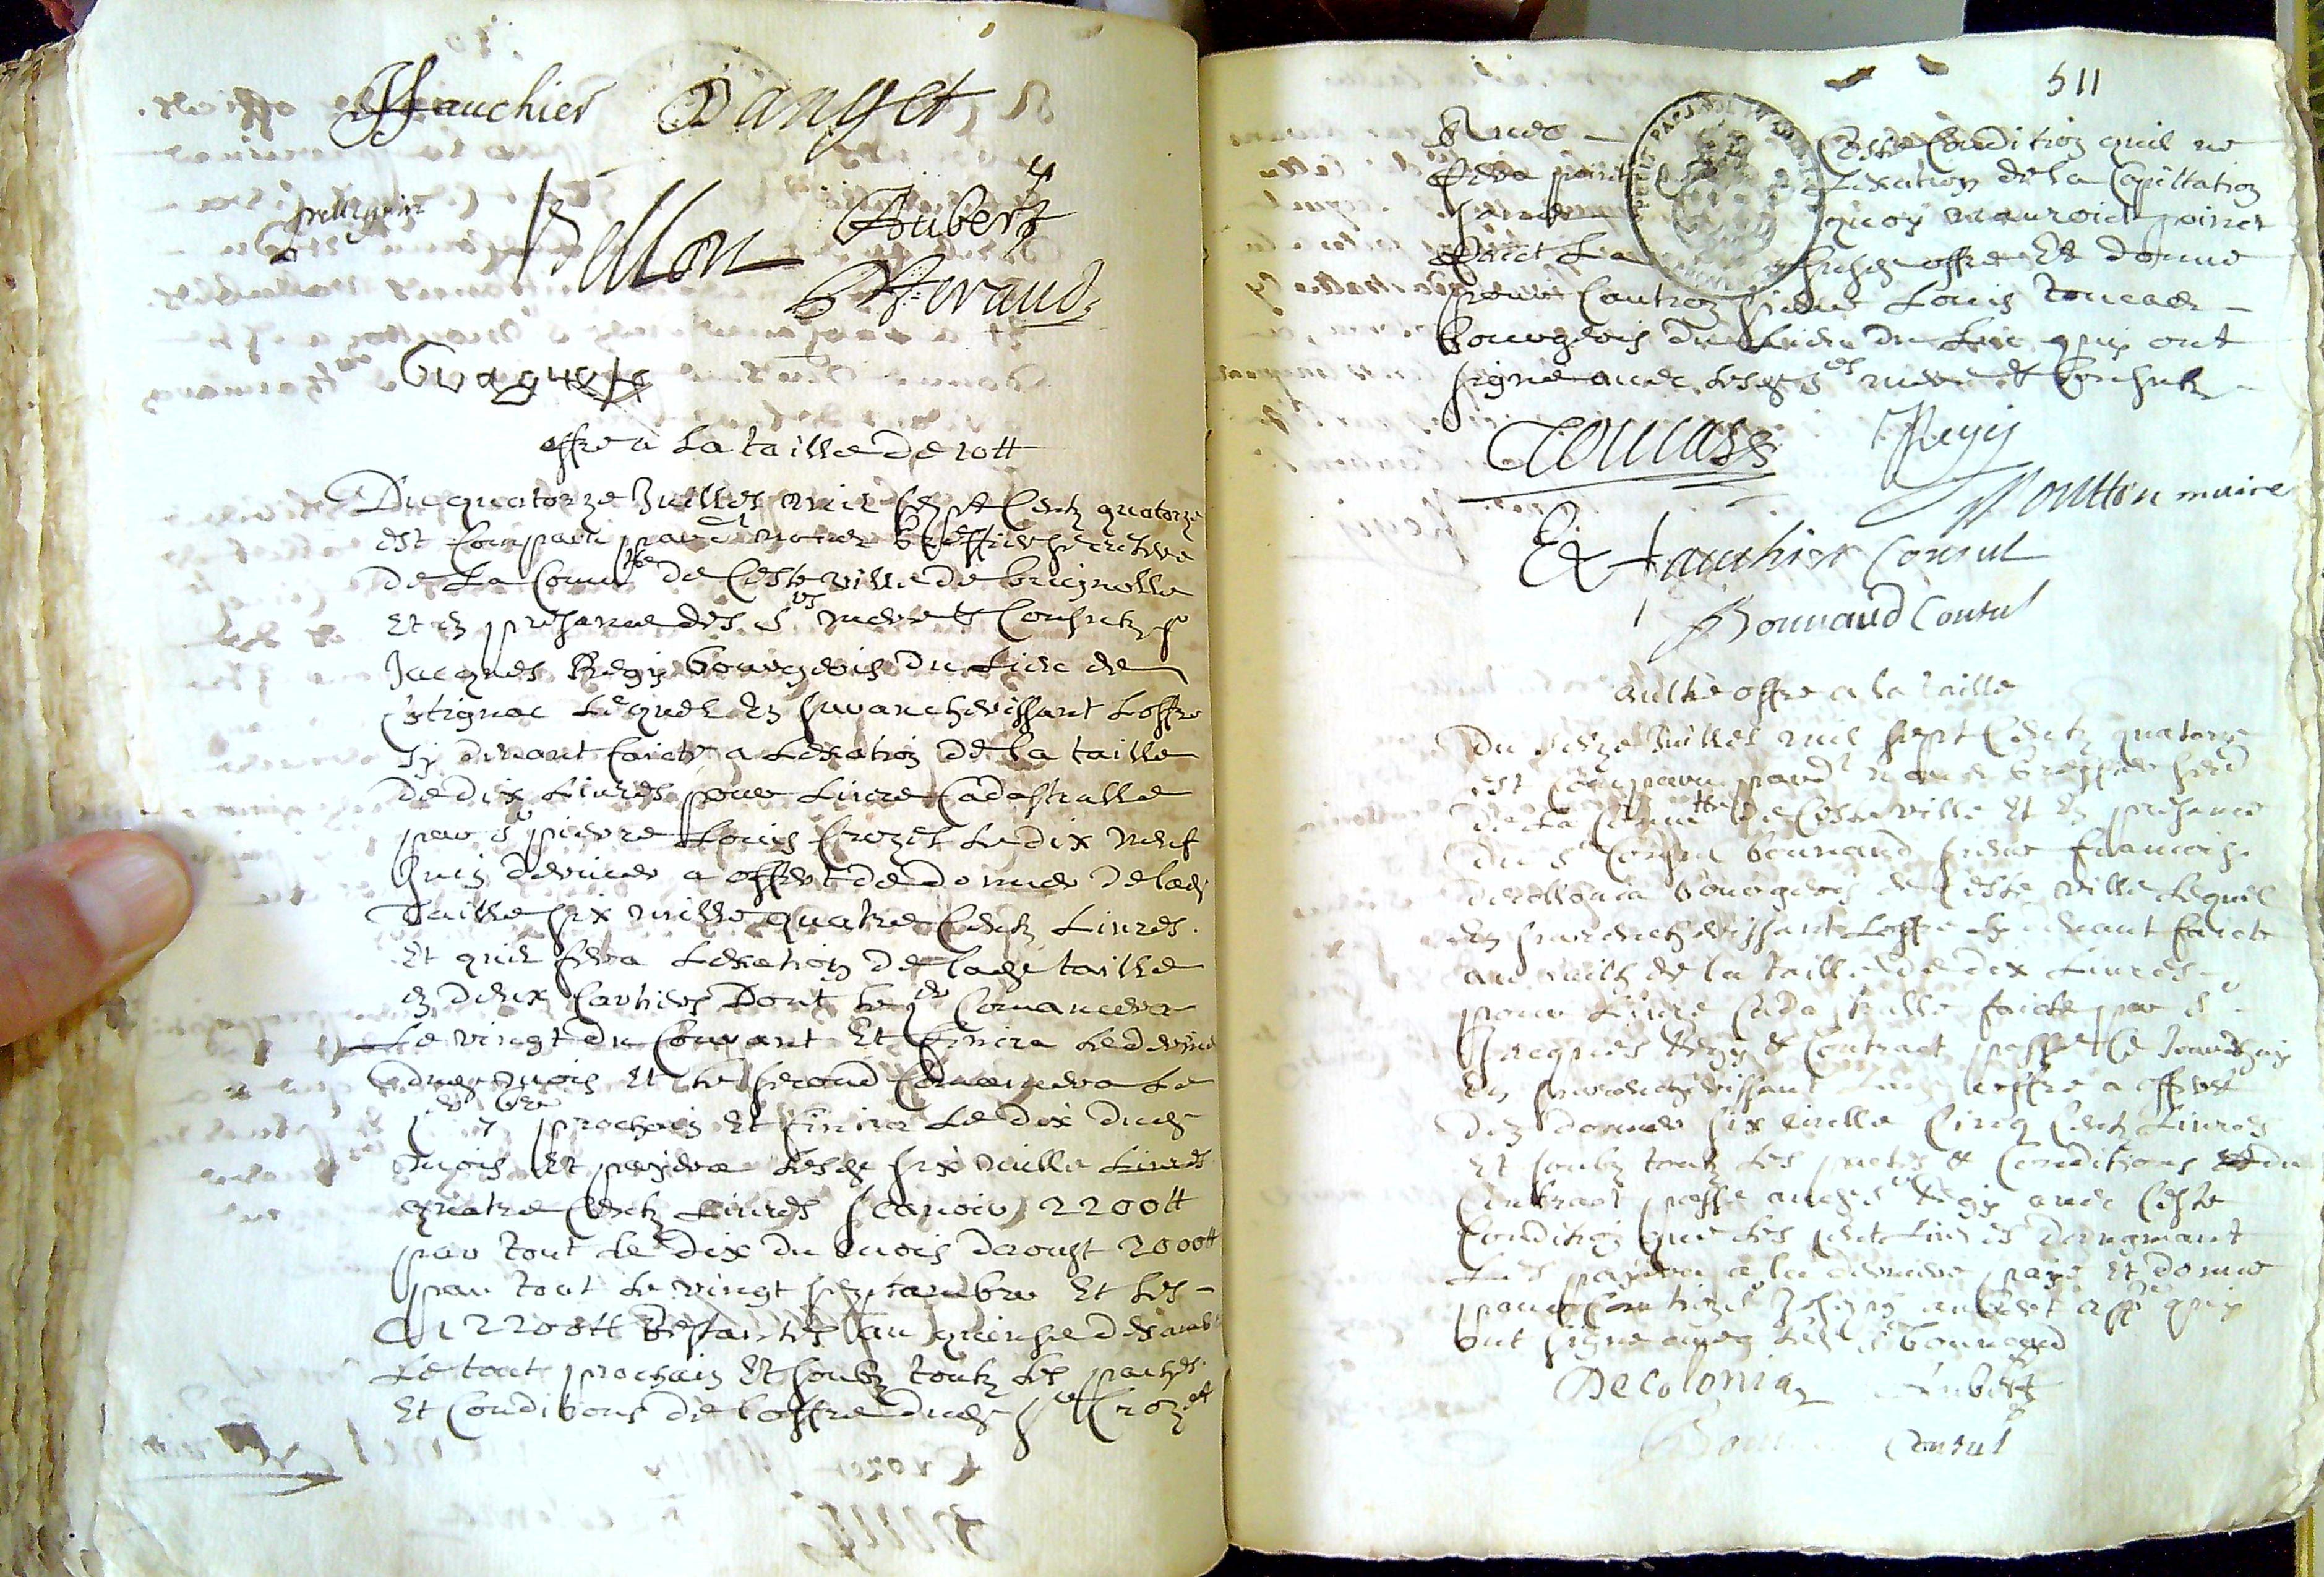 ffauchier Danget
pellegrin
Bellon Aubert
Heraud
Gvaguels
offre a la taille de 10tt
Du quatorze Juillet mil sept centz quatorze
est comparu pard^t nous greffier secretere
de la comm^tte de ceste ville de brignolle
et en presance des s^rs mere et consulz s^r
Jacques Regis bourgeois du lieu de
lequel en survancherissant loffre
sy devant faicte a lexation de la taille
de dix livres pour livre cadastralle
par s^r pierre Louis Crozet le dix neuf
Juin dernier a offert de donner de lad^e
taille six mille quatre centz livres
et quil fera lexation de lad^e taille
en deux cartiers dont le p^er comancera
le vingt du courant et finira le
dud mois et le second comancera le
prochain et finira le dix dud
mois et payera lesd^s six mille livres
quatre centz livres scavoir 2200tt
par tout le dix du mois daoust 2000tt
par tout le vingt septambre et les
2200tt restantes au quinse
le tout prochain et soubz toutz les pactes
et conditions de loffre dud s^r Crozet
511
Avec ceste condition quil ne
fera point lexation de la capittation
quoy nauroit point
faict la susd^e offre et donne
pour caution sieur Louis toucas
bourgeois du lieu du Luc quy ont
signe avec lesd^s s^rs mere et consulz
Toucass Regis
Moutton maire
Ex fauchier Consul
Bonnaud Consul
aultre offre a la taille
Du seize Juillet mil sept centz quatorze
est comparu pard^t nous greffier
de la comm^tte de ceste ville et en presance
du s^r consul bonnaud sieur francois
decollonia bourgeois de ceste ville lequel
en survancherissant loffre sy devant faicte
de la taille de dix livres
pour livre cadastralle faicte par s^r
Jacques Regis & contract passe ce Jourdhuy
en survancherissant loffre a offert
den donner six mille cinq centz livres
et soubz toutz les pactes & conditions du
contract passe aud s^r Regis avec ceste
condition que les cent livres daugmant
les payera a la derniere paye et donne
pour caution s^r Joseph aubert quy
ont signe avec led s^r bonnaud
Decolonia Aubert
Bonnaud Consul